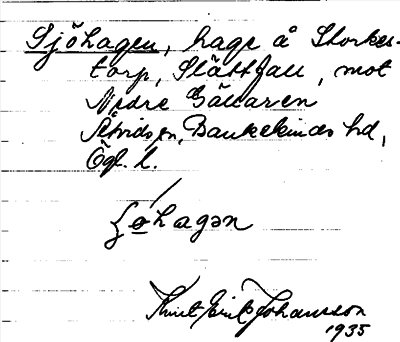 Sjöhagen, hage å Storkes-
torp, Slättfall, mot
Nedre Gällaren
Åtvids sn, Bankekinds hd,
Ögl. l.
ʃøhagən
Knut Erik Johansson
1935